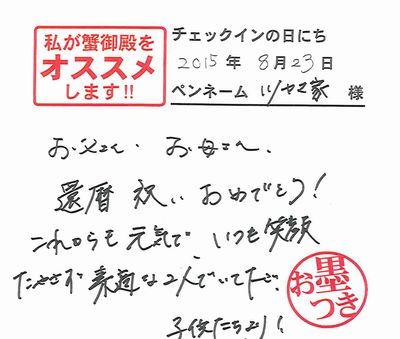 私が蟹御殿を
オススメ
します!!
チェックインの日にち
2015年 8月23日
ペンネーム ツヤマ家 様
お父さん お母さん、
還暦祝い おめでとう!
これからも元気で いつも笑顔
たやさず 素適な2人でいてネ。
子供たちより!
お墨つき